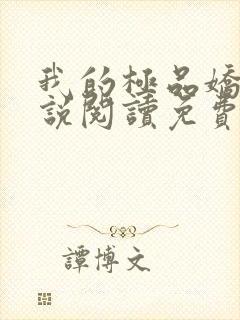 我的極品嬌
說閱讀免費
譚博文